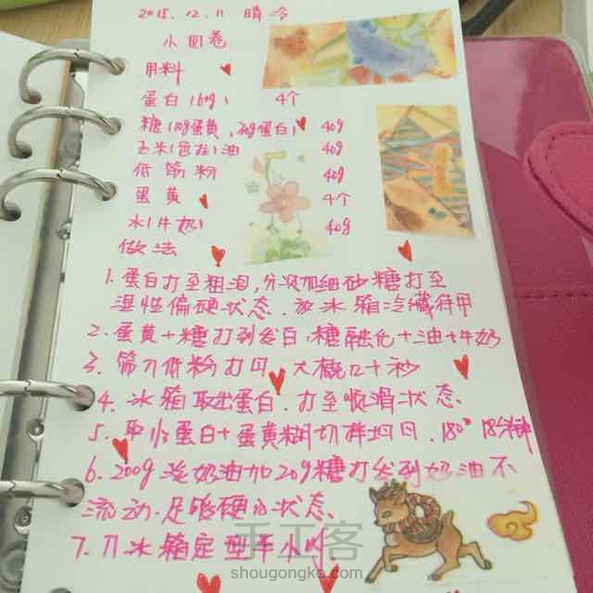 2015.12.11 晴冷
小四卷
用料
蛋白(60g) 4个
糖(10g蛋黄,30g蛋白) 40g
玉米(色拉)油 40g
低筋粉 40g
蛋黄 4个
水(牛奶) 40g
做法
1.蛋白打至粗泡,分次加细砂糖打至
湿性偏硬状态.放冰箱冷藏待用
2.蛋黄+糖打到发白,糖融化+油+牛奶
3.筛入低粉打匀.大概二十秒
4.冰箱取出蛋白.打至顺滑状态.
5.取1/3蛋白+蛋黄糊切拌均匀.180°18分钟
6.200g淡奶油加20g糖打发到奶油不
流动.足够硬的状态.
7.入冰箱定型半小时.
手工客
shougongke.com